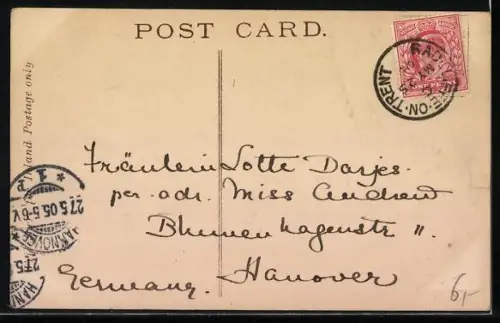 POST CARD.
land Postage only
RADCLIFFE-ON-TRENT
Fräulein Lotte Darjes.
per. adr. Miss Andrew
Blumenhagenstr 11.
Hanover
Germany.
HANNOVER
27.5.05.5-6V.
* 1 P
6,-